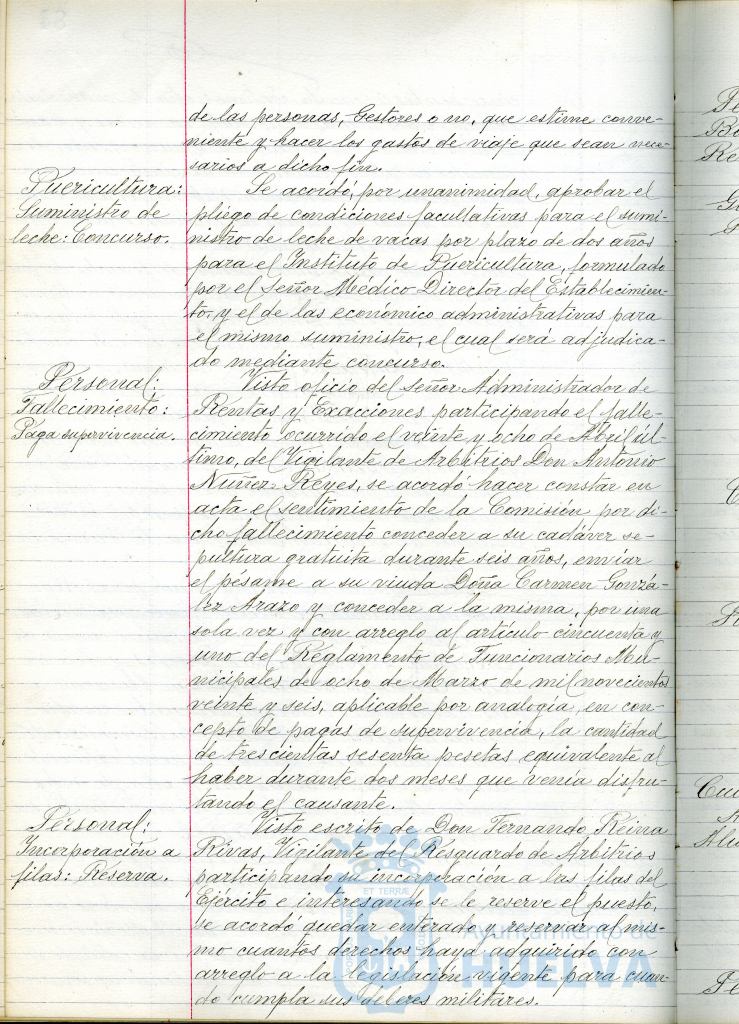 de las personas, Gestores o no, que estime conve-
niente y hacer los gastos de viaje que sean nece-
sarios a dicho fin.
Puericultura:
Suministro de
leche: Concurso.
Se acordó, por unanimidad, aprobar el
pliego de condiciones facultativas para el sumi-
nistro de leche de vacas por plazo de dos años
para el Instituto de Puericultura, formulado
por el Señor Médico Director del Establecimien-
to, y el de las económico administrativas para
el mismo suministro, el cual será adjudica-
do mediante concurso.
Personal:
Fallecimiento:
Paga supervivencia.
Visto oficio del Señor Administrador de
Rentas y Exacciones participando el falle-
cimiento ocurrido el veinte y ocho de Abril úl-
timo, del Vigilante de Arbitrios Don Antonio
Nuñez Reyes, se acordó hacer constar en
acta el sentimiento de la Comisión por di-
cho fallecimiento conceder a su cadáver se-
pultura gratuita durante seis años, enviar
el pésame a su viuda Doña Carmen Gonzá-
lez Arazo y conceder a la misma, por una
sola vez y con arreglo al artículo cincuenta y
uno del Reglamento de Funcionarios Mu-
nicipales de ocho de Marzo de mil novecientos
veinte y seis, aplicable por analogía, en con-
cepto de pagas de supervivencia, la cantidad
de trescientas sesenta pesetas equivalente al
haber durante dos meses que venía disfru-
tando el causante.
Personal:
Incorporación a
filas: Reserva.
Visto escrito de Don Fernando Reina
Rivas, Vigilante del Resguardo de Arbitrios
participando su incorporación a las filas del
Ejército e interesando se le reserve el puesto,
se acordó quedar enterado y reservar al mis-
mo cuantos derechos haya adquirido con
arreglo a la legislación vigente para cuan-
do cumpla sus deberes militares.
ET TERRÆ
Ayuntamiento de
HUELVA